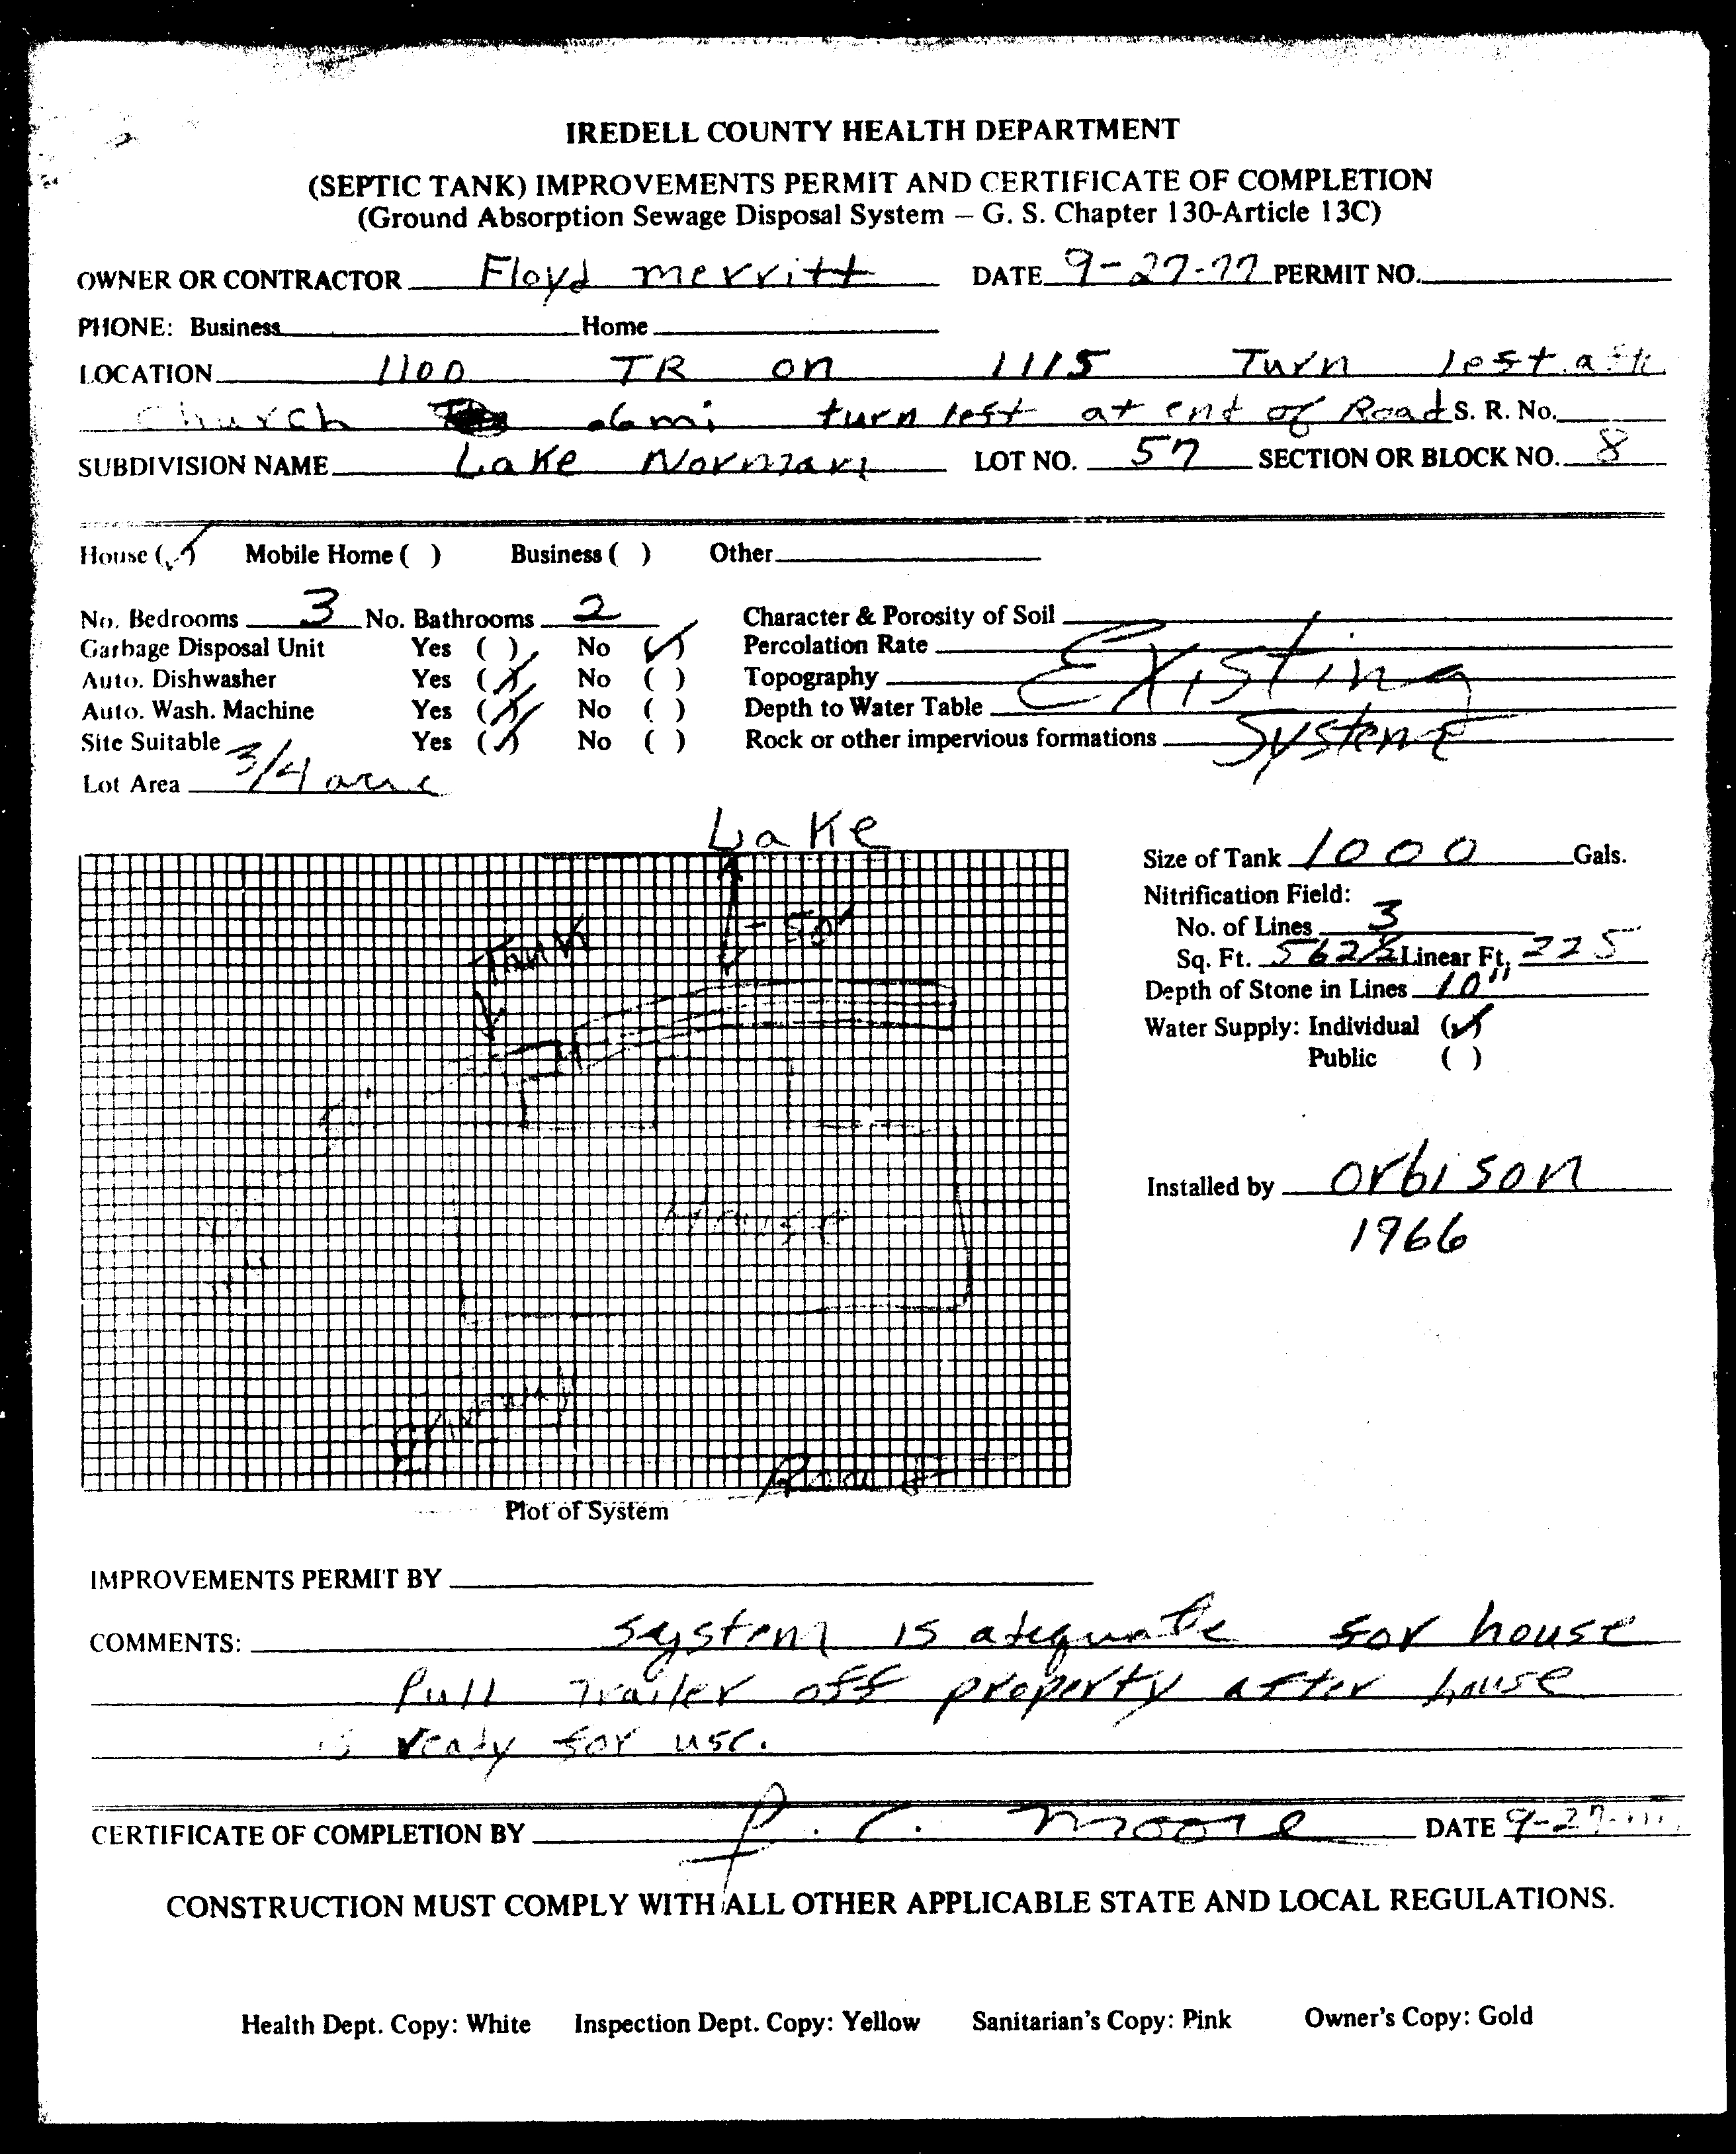 IREDELL COUNTY HEALTH DEPARTMENT
(SEPTIC TANK) IMPROVEMENTS PERMIT AND CERTIFICATE OF COMPLETION
(Ground Absorption Sewage Disposal System – G. S. Chapter 130-Article 13C)
OWNER OR CONTRACTOR Floyd merritt DATE 9-27-77 PERMIT NO.
PHONE: Business Home
LOCATION 1100 TR on 1115 Turn left
Church .6 mi turn left at end of Road S. R. No.
SUBDIVISION NAME Lake Norman LOT NO. 57 SECTION OR BLOCK NO. 8
House (✓) Mobile Home ( ) Business ( ) Other
No. Bedrooms 3 No. Bathrooms 2 Character & Porosity of Soil
Garbage Disposal Unit Yes ( ) No (✓) Percolation Rate
Auto. Dishwasher Yes (✓) No ( ) Topography Existing
Auto. Wash. Machine Yes (✓) No ( ) Depth to Water Table
Site Suitable Yes (✓) No ( ) Rock or other impervious formations System
Lot Area 3/4 acre
Lake
Size of Tank 1000 Gals.
Nitrification Field:
No. of Lines 3
Sq. Ft. 562½ Linear Ft. 225
Depth of Stone in Lines 10"
Water Supply: Individual (✓)
Public ( )
Tank
50'
House
Driveway
Road
Installed by Orbison
1966
Plot of System
IMPROVEMENTS PERMIT BY
COMMENTS: System is adequate for house
Pull Trailer off property after house
is ready for use.
CERTIFICATE OF COMPLETION BY Moore DATE 9-27-77
CONSTRUCTION MUST COMPLY WITH ALL OTHER APPLICABLE STATE AND LOCAL REGULATIONS.
Health Dept. Copy: White Inspection Dept. Copy: Yellow Sanitarian's Copy: Pink Owner's Copy: Gold